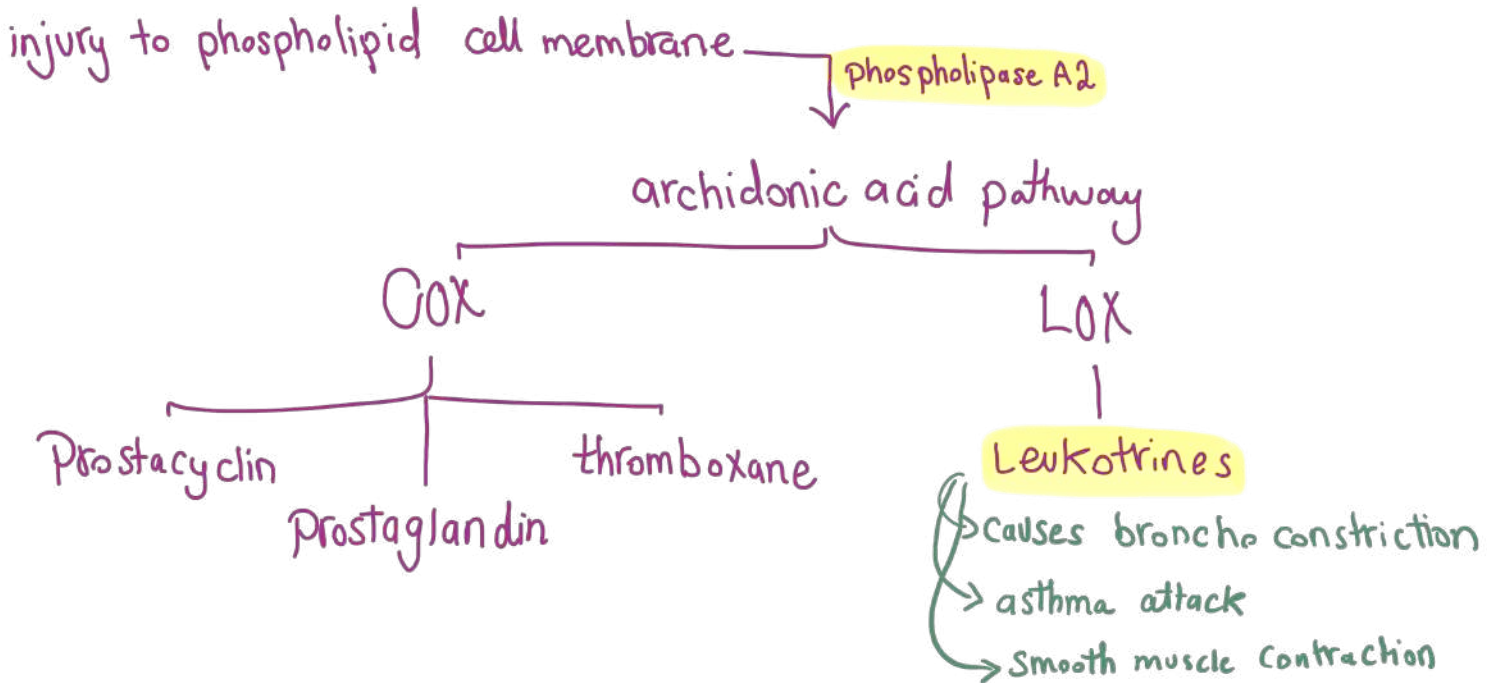 injury to phospholipid cell membrane
phospholipase A2
archidonic acid pathway
COX
LOX
Prostacyclin
prostaglandin
thromboxane
Leukotrines
causes broncho constriction
asthma attack
smooth muscle contraction